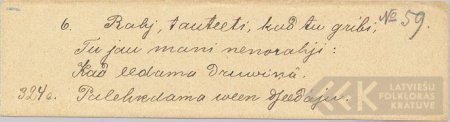 6. Rahj, tauteeti, kad tu gribi, № 59.
Tu jau mani nenorahji:
Kad eedama Druwinâ.
324 6. Palehkdama ween dseedaju.
LATVIEŠU
FOLKLORAS
KRĀTUVE